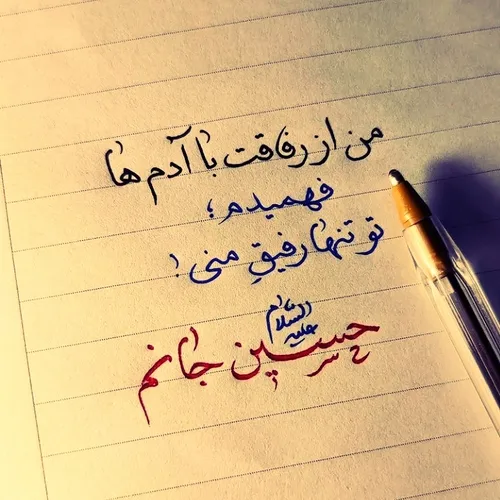 من از رفاقت با آدم ها
فهمیدم؛
تو تنها رفیقِ منی!
علیه السلام
حسین جانم